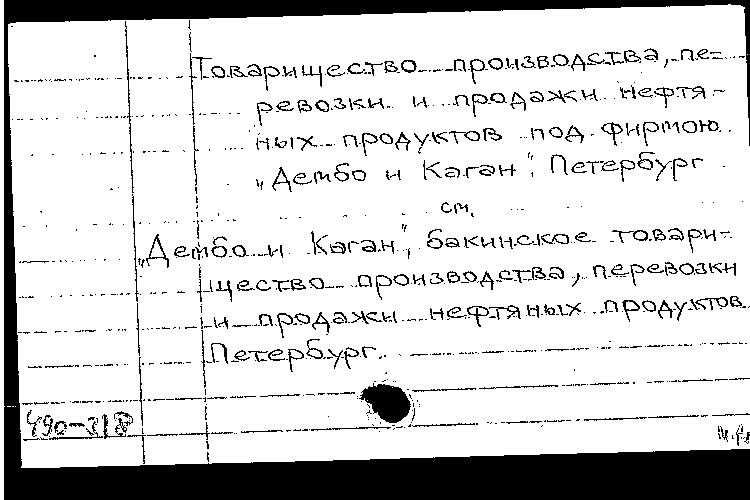 Товарищество производства, пе-
ревозки и продажи нефтя-
ных продуктов под фирмою
"Дембо и Каган", Петербург
см.
"Дембо и Каган", бакинское товари-
щество производства, перевозки
и продажи нефтяных продуктов
Петербург.
490-318